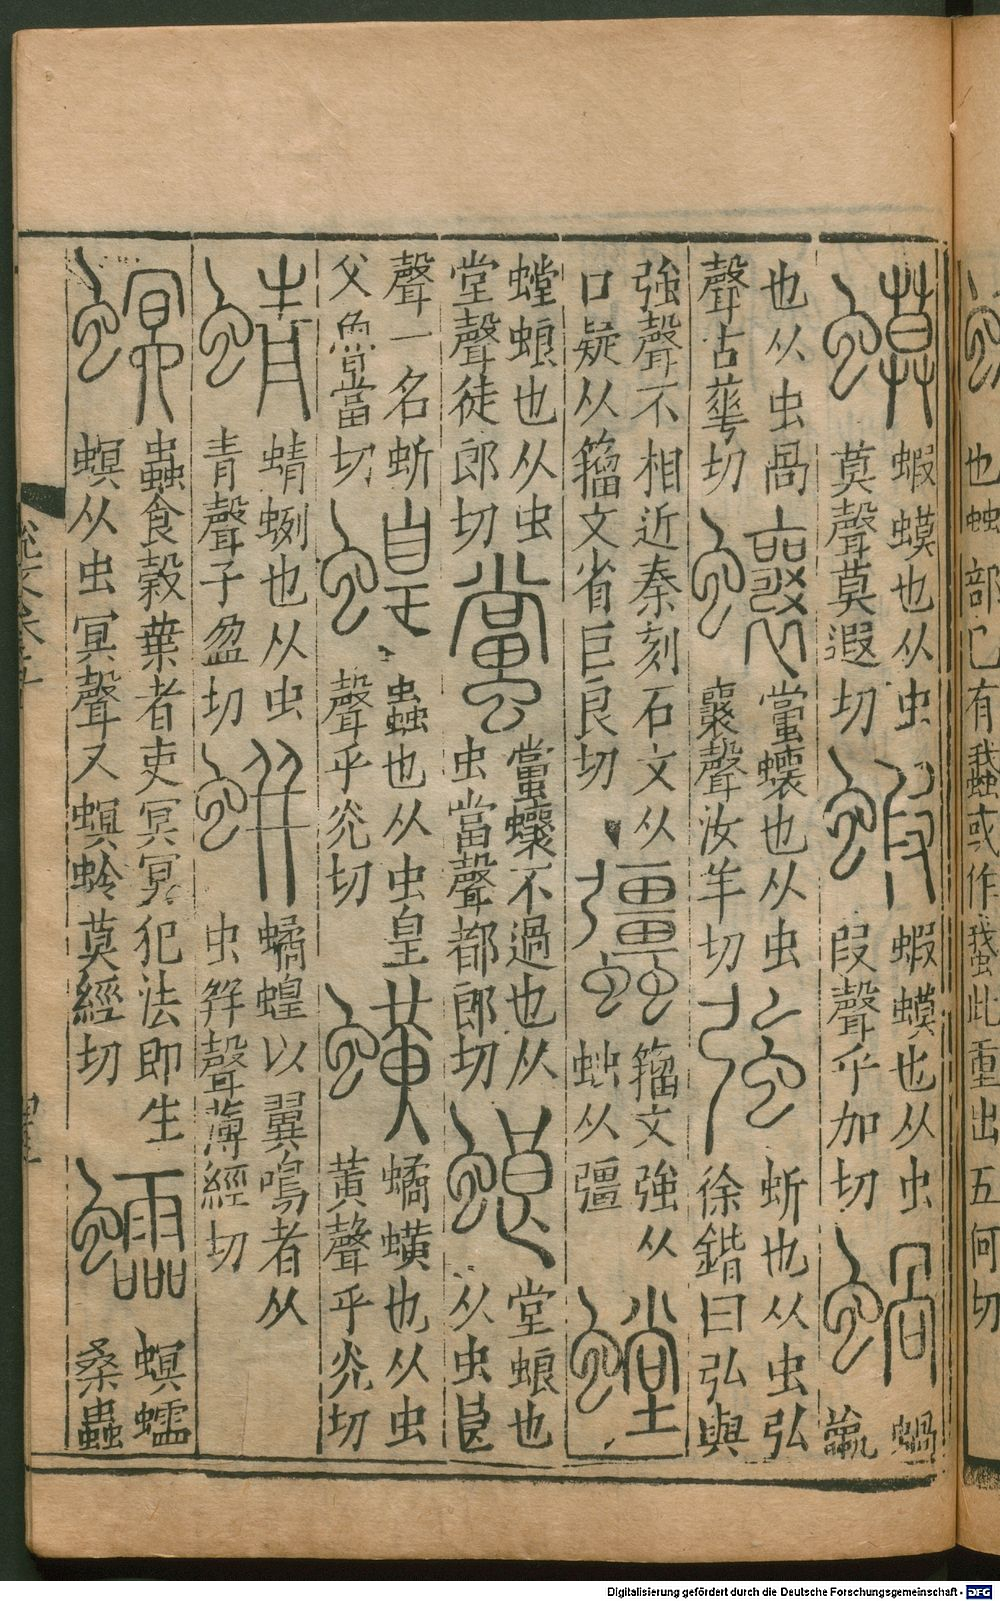 也䖵部已有𧒎或作𧎷此重出五何切
蟆蝦蟆也从虫莫聲莫遐切蝦蝦蟆也从虫叚聲乎加切蝸蝸蠃
也从虫咼聲古華切蠰當蠰也从虫襄聲汝羊切強蚚也从虫弘徐鍇曰弘與
強聲不相近秦刻石文从口疑从籀文省巨良切籀文強从䖵从彊螳
螳蜋也从虫堂聲徒郎切蟷當蠰不過也从虫當聲都郎切蜋堂蜋也从虫良
聲一名蚚父魯當切蝗蟲也从虫皇聲乎光切蟥蟜蟥也从虫黃聲乎光切
蜻蜻蛚也从虫青聲子盈切蛢蟜蝗以翼鳴者从虫幷聲薄經切
螟蟲食穀葉者吏冥冥犯法即生螟从虫冥聲又螟蛉莫經切螟桑蟲
Digitalisierung gefördert durch die Deutsche Forschungsgemeinschaft - DFG